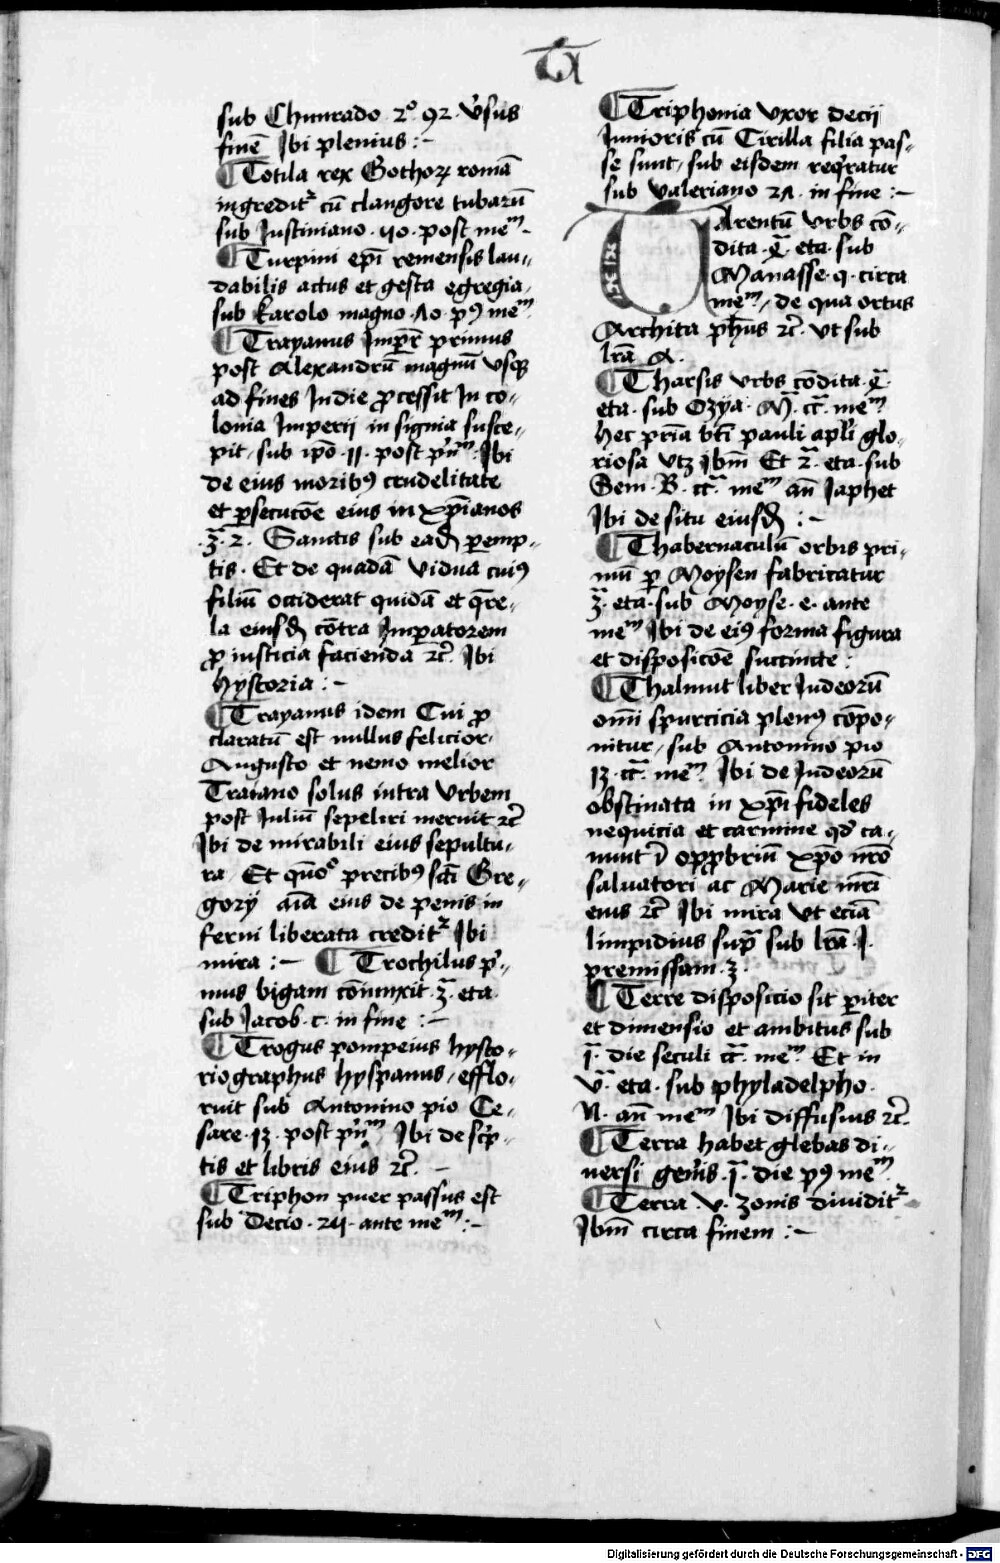 sub Chunrado 2º 92 v̉sus
finē Ibi plenius :-
¶ Totila rex Gothoꝝ romā
ingreditᷣ cū clangore tubarū
sub Iustiniano · 40 · post meᵐ -
¶ Turpini ep̄i remensis lau-
dabilis actus et gesta egregia,
sub karolo magno · Λ0 · pꝰ meᵐ
¶ Trayanus Imper̄ primus
post Alexandrū magnū vsqꝫ
ad fines Indie ꝓcessit In co-
lonia Imperij in signia susce-
pit, sub ip̄o · 11 · post pn̄ᵐ · Ibi
de eius moribꝰ crudelitate
et ꝑsecucōe eius in xp̄ianos
· 3̄ · 2 · Sanctis sub ead̄ ꝑemp-
tis · Et de quadā vidua cuiꝰ
filiū occiderat quidā et q̄re-
la eiusd̄ cōtra Imꝑatorem
ꝓ iusticia facienda ⁊c̄ · Ibi
hystoria :-
¶ Trayanus idem Cui ꝓ
claratū est nullus felicior
Augusto et nemo melior
Traiano solus intra vrbem
post Iuliū sepeliri meruit ⁊c̄
Ibi de mirabili eius sepultu-
ra · Et quōº precibꝰ sc̄i Gre-
gorij aīa eius de penis in
ferni liberata creditᷣ Ibi
mira :- ¶ Trochilus p̉-
mus bigam cōiunxit · 3̄ · eta
sub Jacob · c · in fine :-
¶ Trogus pompeius hysto-
riographus hyspanus, efflo-
ruit sub Antonino pio Ce-
sare · 13 · post pn̄ᵐ Ibi de sc̉p-
tis et libris eius ⁊c̄ · -
¶ Triphon puer passus est
sub Decio · 24 · ante meᵐ :-
¶ Triphonia vxor decij
Iunioris cū Cirilla filia pas-
se sunt, sub eisdem req̉ratur
sub Valeriano 2Λ · in fine :-
Tarentū vrbs cō-
dita · 4̄ · eta · sub
Manasse · q · circa
meᵐ, de qua ortus
Archita ph̄us ⁊c̄ · vt sub
lr̄a A ·
¶ Tharsis vrbs cōdita · 4̄
eta · sub Ozya · M̄ · cc̄ · meᵐ
hec pr̄ia bt̄i pauli apl̄i glo-
riosa vtꝫ Ibm̄ Et 2̄ · eta · sub
Sem · B · cc̄ · meᵐ an̄ Iaphet
Ibi de situ eiusd̄ :-
¶ Thabernaculū orbis pri-
mū ꝑ Moysen fabricatur
3̄ · etā · sub Moyse · e · ante
meᵐ Ibi de eiꝰ forma figura
et disposicōe succincte :
¶ Thalmut liber Iudeorū
omī spurcicia plenꝰ cōpo-
nitur, sub Antonino pio
13 · cc̄ · meᵐ Ibi de Iudeorū
obstinata in xp̄i fideles
nequicia et carmine qd̄ ca-
nunt ī opprobriū xp̄o nr̄o
saluatori ac Marie mr̄i
eius ⁊c̄ Ibi mira vt eciā
limpidius sup̄ sub lr̄a · I ·
premissam · 3 ·
¶ Terre disposicio sit ꝑiter
et dimensio et ambitus sub
1̄ · die seculi cc̄ · meᵐ Et in
v̄ · eta · sub phyladelpho ·
N · an̄ meᵐ Ibi diffusius ⁊c̄
¶ Terra habet glebas di-
uersi gen̉is · 1̄ · die pꝰ meᵐ
¶ Terra · v · zonis diuiditᷣ
Ibm̄ circa finem :-
Digitalisierung gefördert durch die Deutsche Forschungsgemeinschaft - DFG